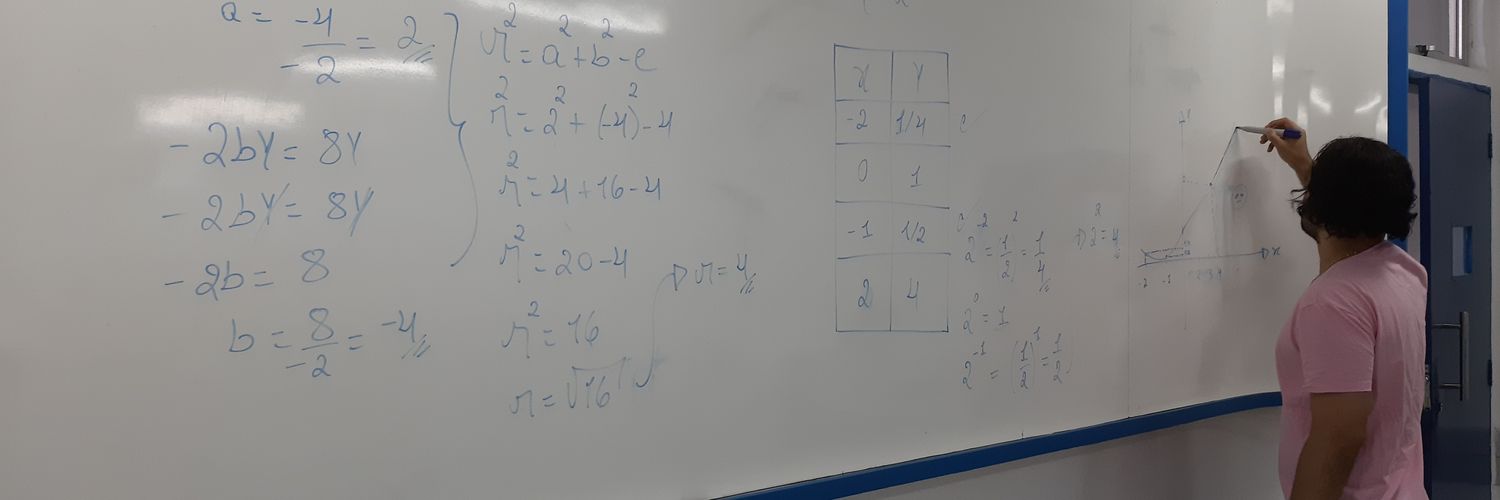 a = -4/-2 = 2
-2bY = 8Y
-2bY = 8Y
-2b = 8
b = 8/-2 = -4
r² = a² + b² - c
r² = 2² + (-4)² - 4
r² = 4 + 16 - 4
r² = 20 - 4
r² = 16
r = √16
r = 4
X Y
-2 1/4
0 1
-1 1/2
2 4
2⁻² = 1/2² = 1/4
2² = 4
2⁰ = 1
2⁻¹ = (1/2)¹ = 1/2
Y
x
-2 -1